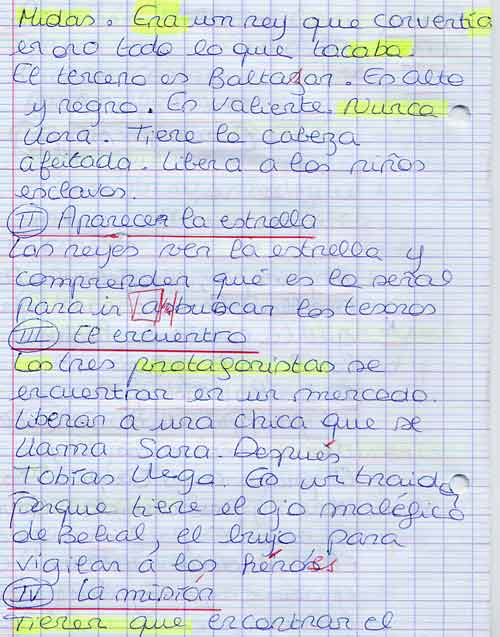 Midas. Era un rey que convertía
en oro todo lo que tocaba.
El tercero es Baltazar. Es alto
y negro. Es valiente. Nunca
llora. Tiene la cabeza
afeitada. Libera a los niños
esclavos.
II Aparecen la estrella
Los reyes ven la estrella y
comprenden qué es la señal
para ir a buscar los tesoros
III El encuentro
Los tres protagonistas se
encuentran en un mercado.
Liberan a una chica que se
llama Sara. Después
Tobías llega. Es un traidor
porque tiene el ojo maléfico
de Belial, el brujo para
vigilar a los héroes
IV La misión
Tienen que encontrar el